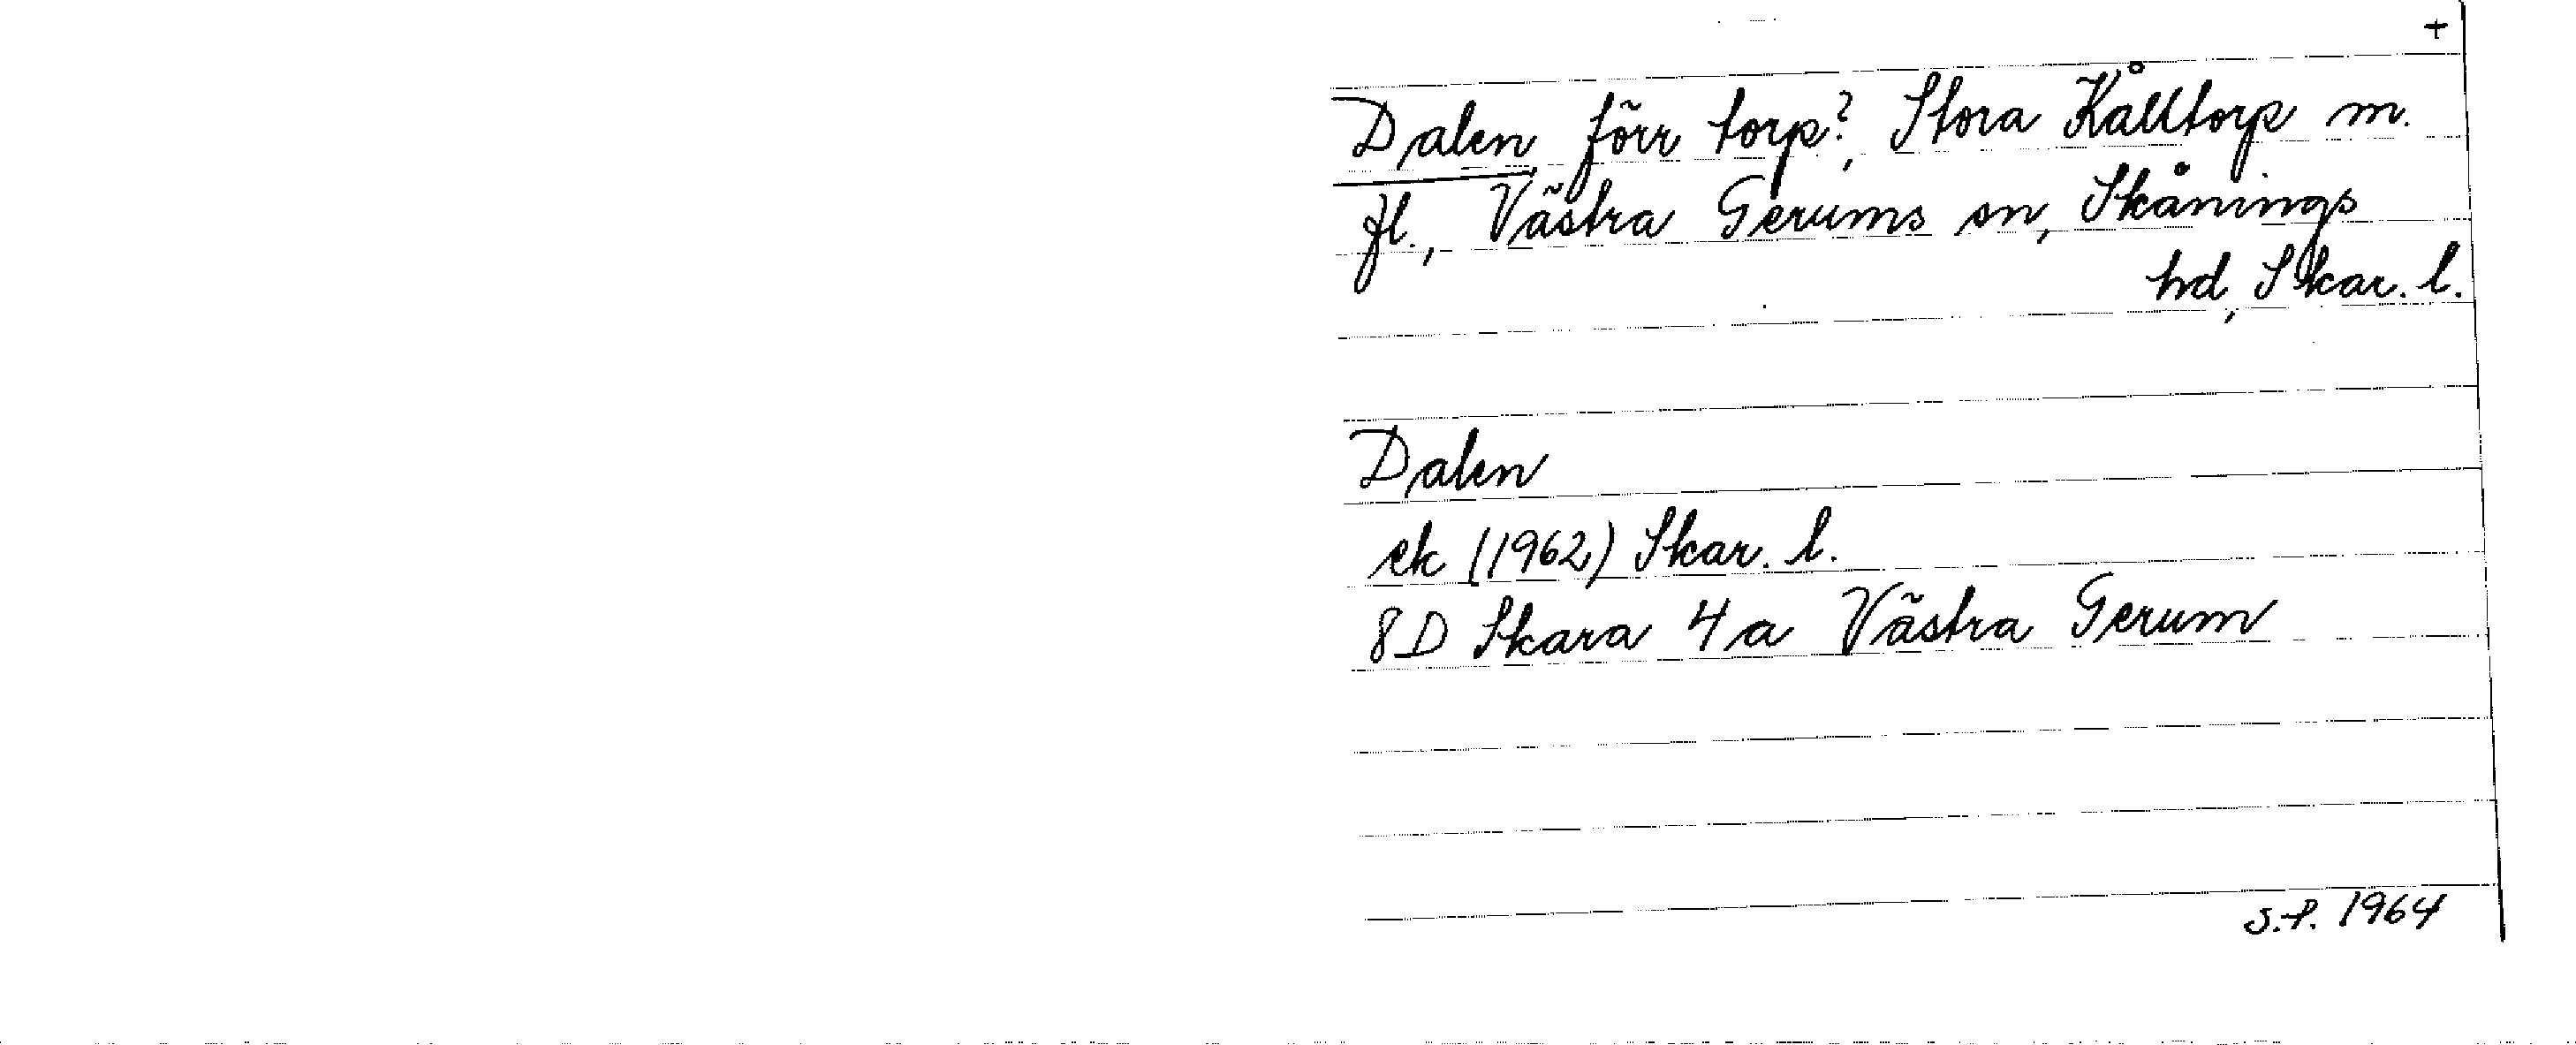 +
Dalen, förr torp?, Stora Kålltorp m.
fl., Västra Gerums sn, Skånings
hd, Skar. l.
Dalen
ek (1962) Skar. l.
8D Skara 4a Västra Gerum
S.P. 1964